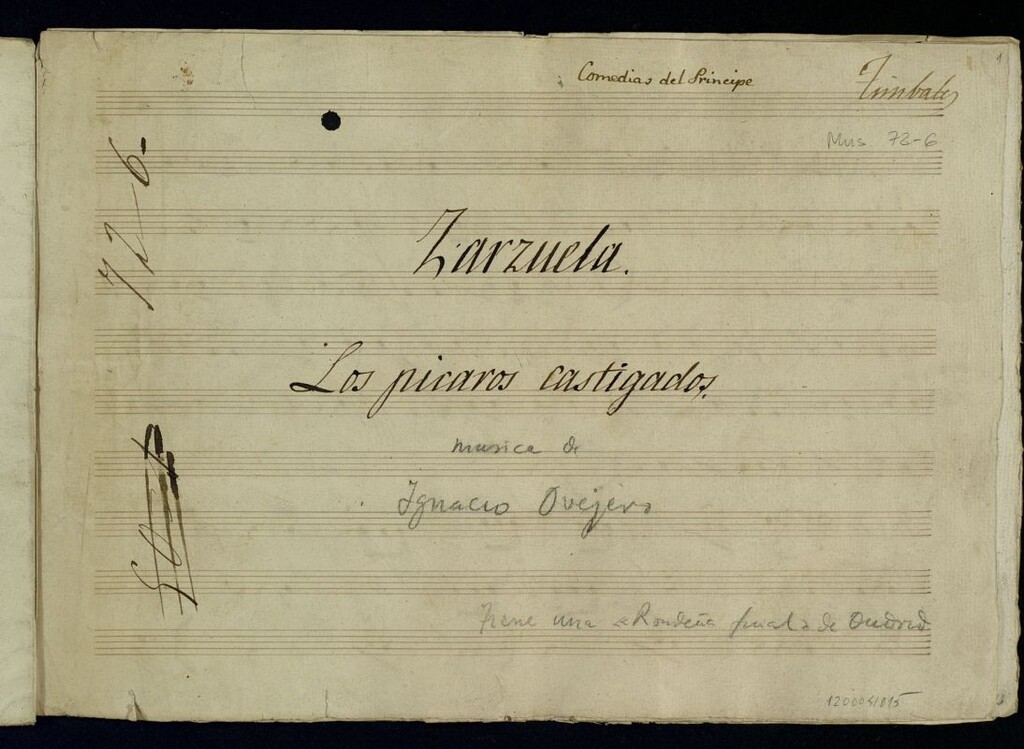 1
Comedias del Principe
Timbales
Mus 72-6
72-6.
Zarzuela.
Los picaros castigados.
musica de
Ignacio Ovejero
Tiene una «Rondeña final» de Oudrid
1200041815